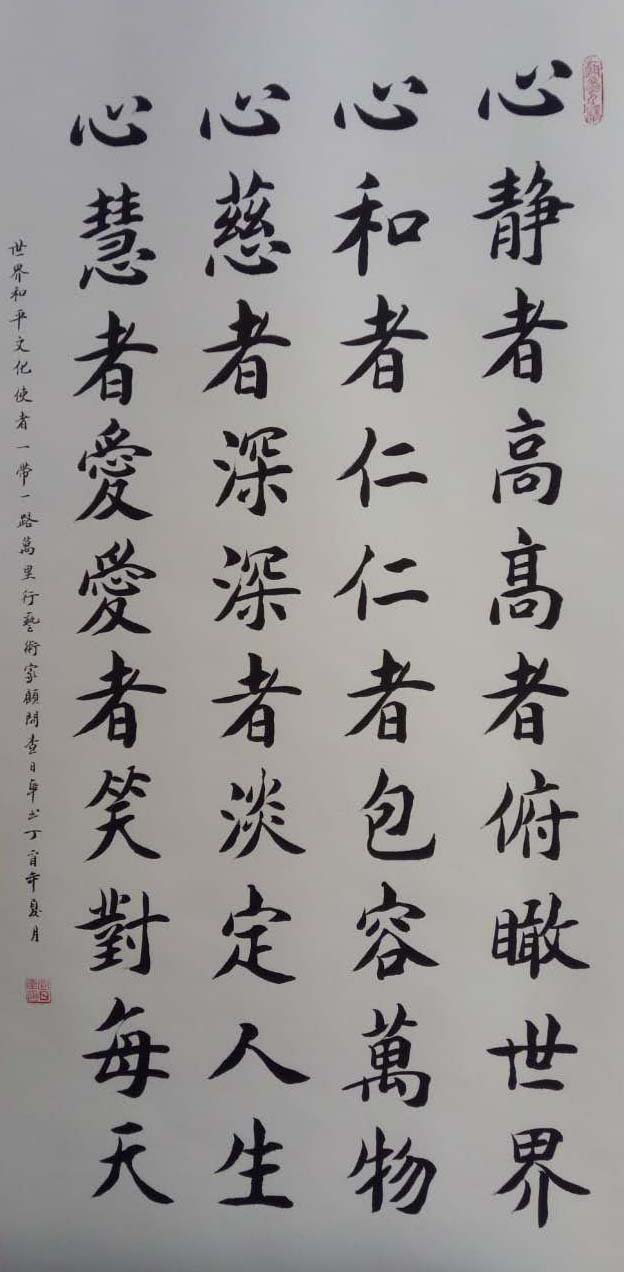 心静者高高者俯瞰世界
心和者仁仁者包容萬物
心慈者深深者淡定人生
心慧者愛愛者笑對每天
世界和平文化使者一带一路萬里行藝術家顧問查日卓书丁酉年夏月